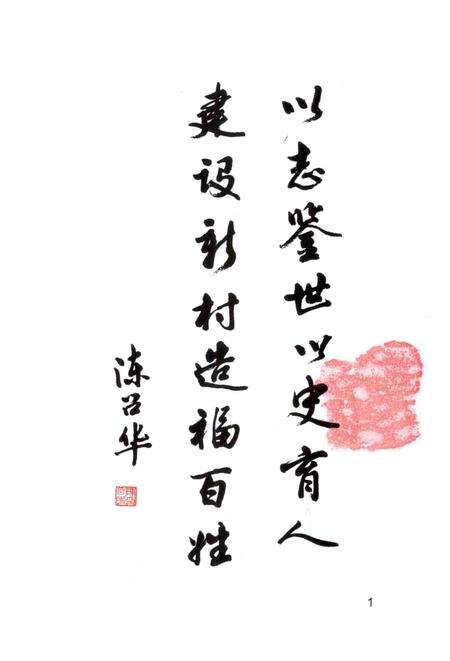 以志鉴世以史育人
建设新村造福百姓
陈召华
1